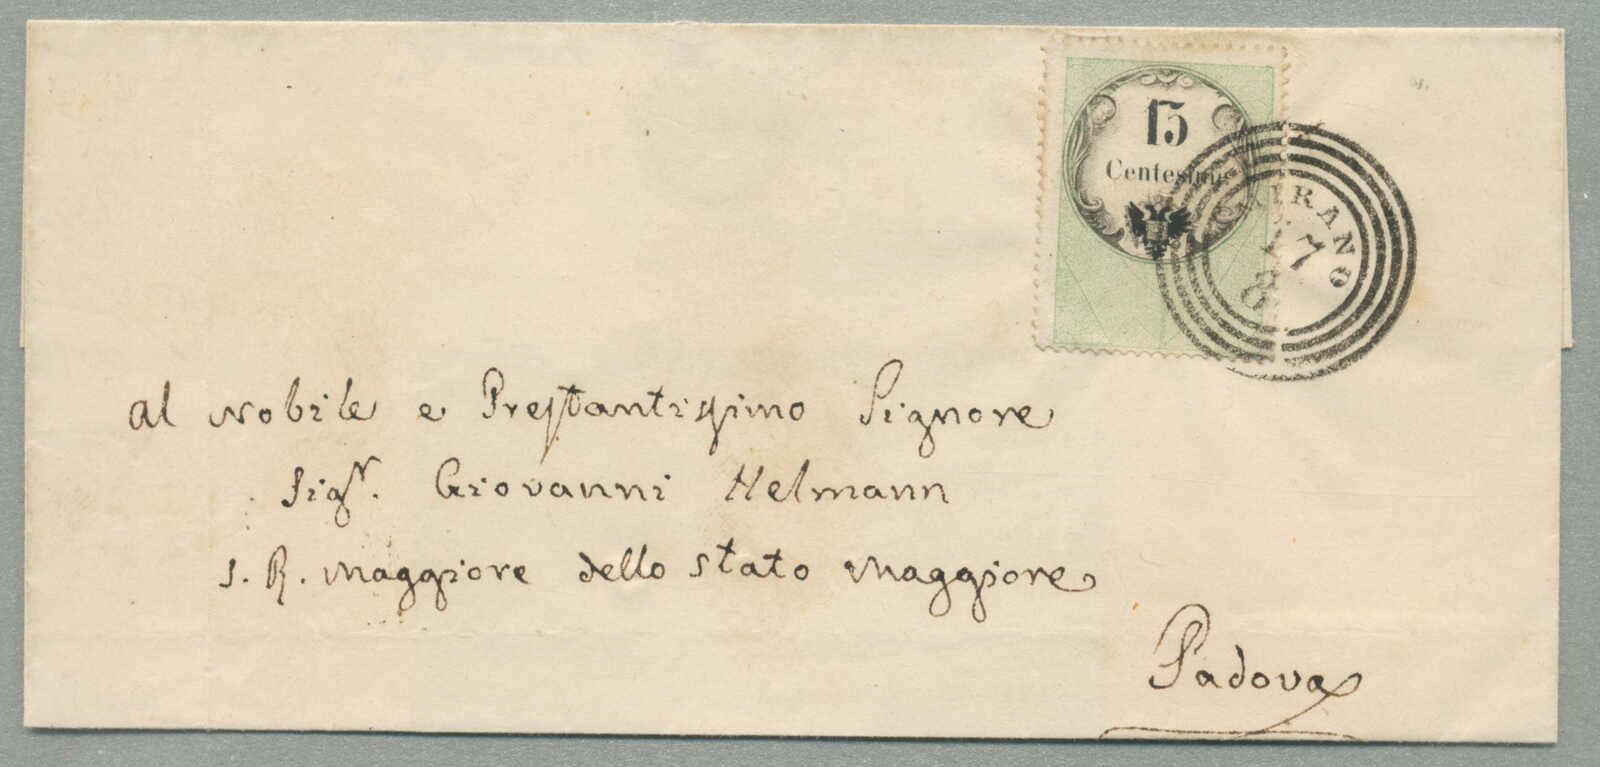 15
Centesimi
MIRANO
17
8
Al Nobile e Prestantissimo Signore
Sigr. Giovanni Helmann
I. R. Maggiore dello Stato Maggiore
Padova